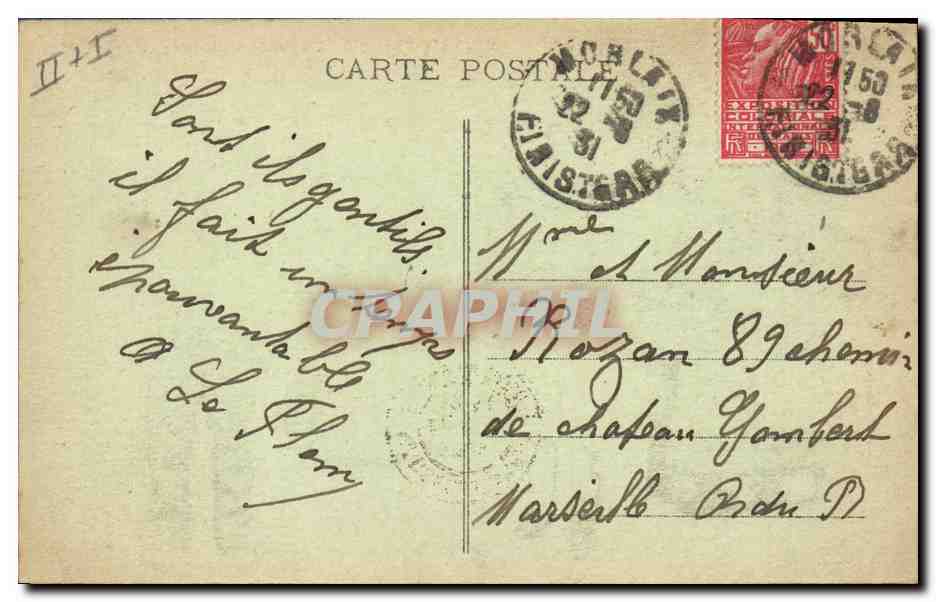 II + I
CARTE POSTALE
MORLAIX
11 50
22 -8
31
FINISTERE
50
EXPOSITION
COLONIALE
INTERNATIONALE
MORLAIX
11 50
22 -8
31
FINISTERE
Sont ils gentils.
il fait un temps
epouvantable
Le Flem
CPARHIL
Mme et Monsieur
Rozan 89 chemin
de chateau Gombert
Marseille B du R